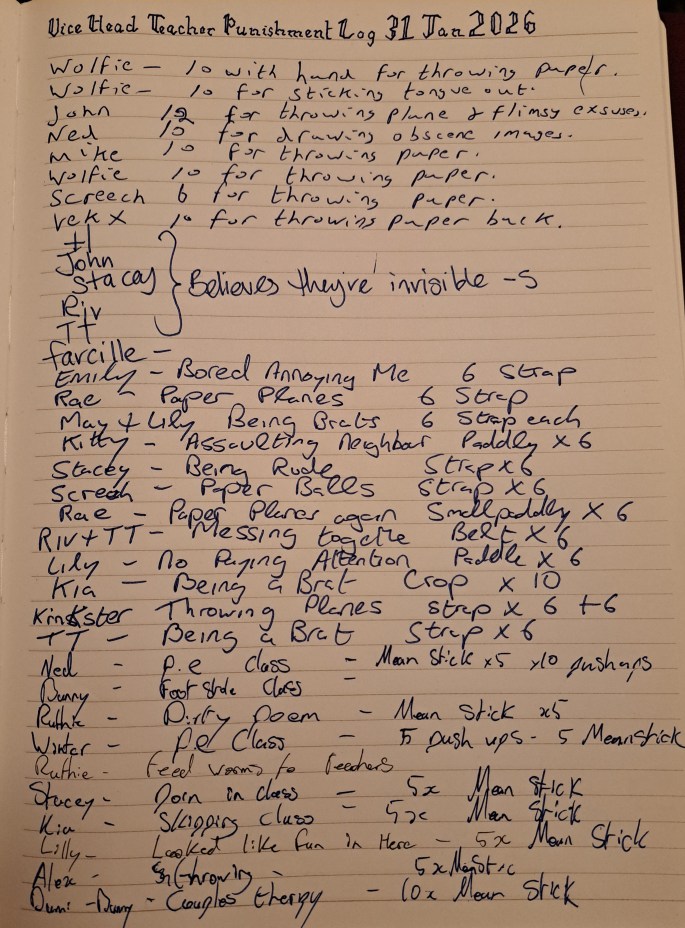 Vice Head Teacher Punishment Log 31 Jan 2026
Wolfie – 10 with hand for throwing paper.
Wolfie – 10 for sticking tongue out.
John 12 for throwing plane & flimsy exsuses.
Ned 10 for drawing obscene images.
Mike 10 for throwing paper.
Wolfie 10 for throwing paper.
Screech 6 for throwing paper.
vekx 10 for throwing paper back.
John
Stacey } Believes they're invisible -5
Riv
TT
farcille –
Emily – Bored Annoying Me 6 Strap
Rae – Paper Planes 6 Strap
May + Lily Being Brats 6 Strap each
Kitty – Assaulting neighbour Paddly x 6
Stacey – Being Rude Strap x 6
Screech – Paper Balls Strap x 6
Rae – Paper Planes again Smallpaddly x 6
Riv + TT – Messing togethe Belt x 6
Lily – no Paying Attention Paddle x 6
Kia – Being a Brat Crop x 10
Kinkster Throwing Planes Strap x 6 + 6
TT – Being a Brat Strap x 6
Ned – P.e Class – Mean Stick x5 x10 pushups
Bunny – Class –
Ruthie – Dirty Poem – Mean Stick x5
Winter – P.e Class – 5 push ups - 5 Meanstick
Ruthie – Feed worms to teachers
Stacey – Porn in class – 5x Mean Stick
Kia – Skipping Class – 5x Mean Stick
Lilly – Looked like fun in Here – 5x Mean Stick
Alex – throwing – 5x
Bunny – Couples therapy – 10x Mean Stick